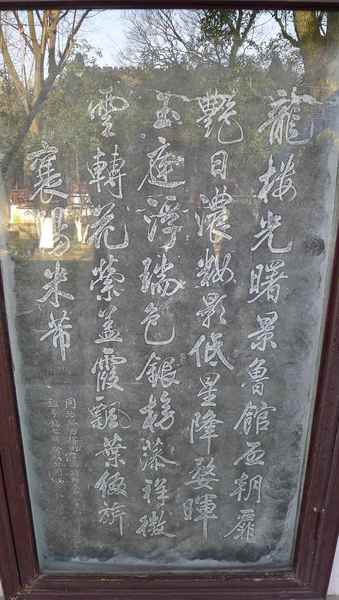 龍樓光曙景魯館啟朝扉
艷日濃妝影低星降婺暉
玉庭浮瑞色銀榜藻祥徽
雲轉花縈蓋霞飄葉綴旂
襄陽米芾